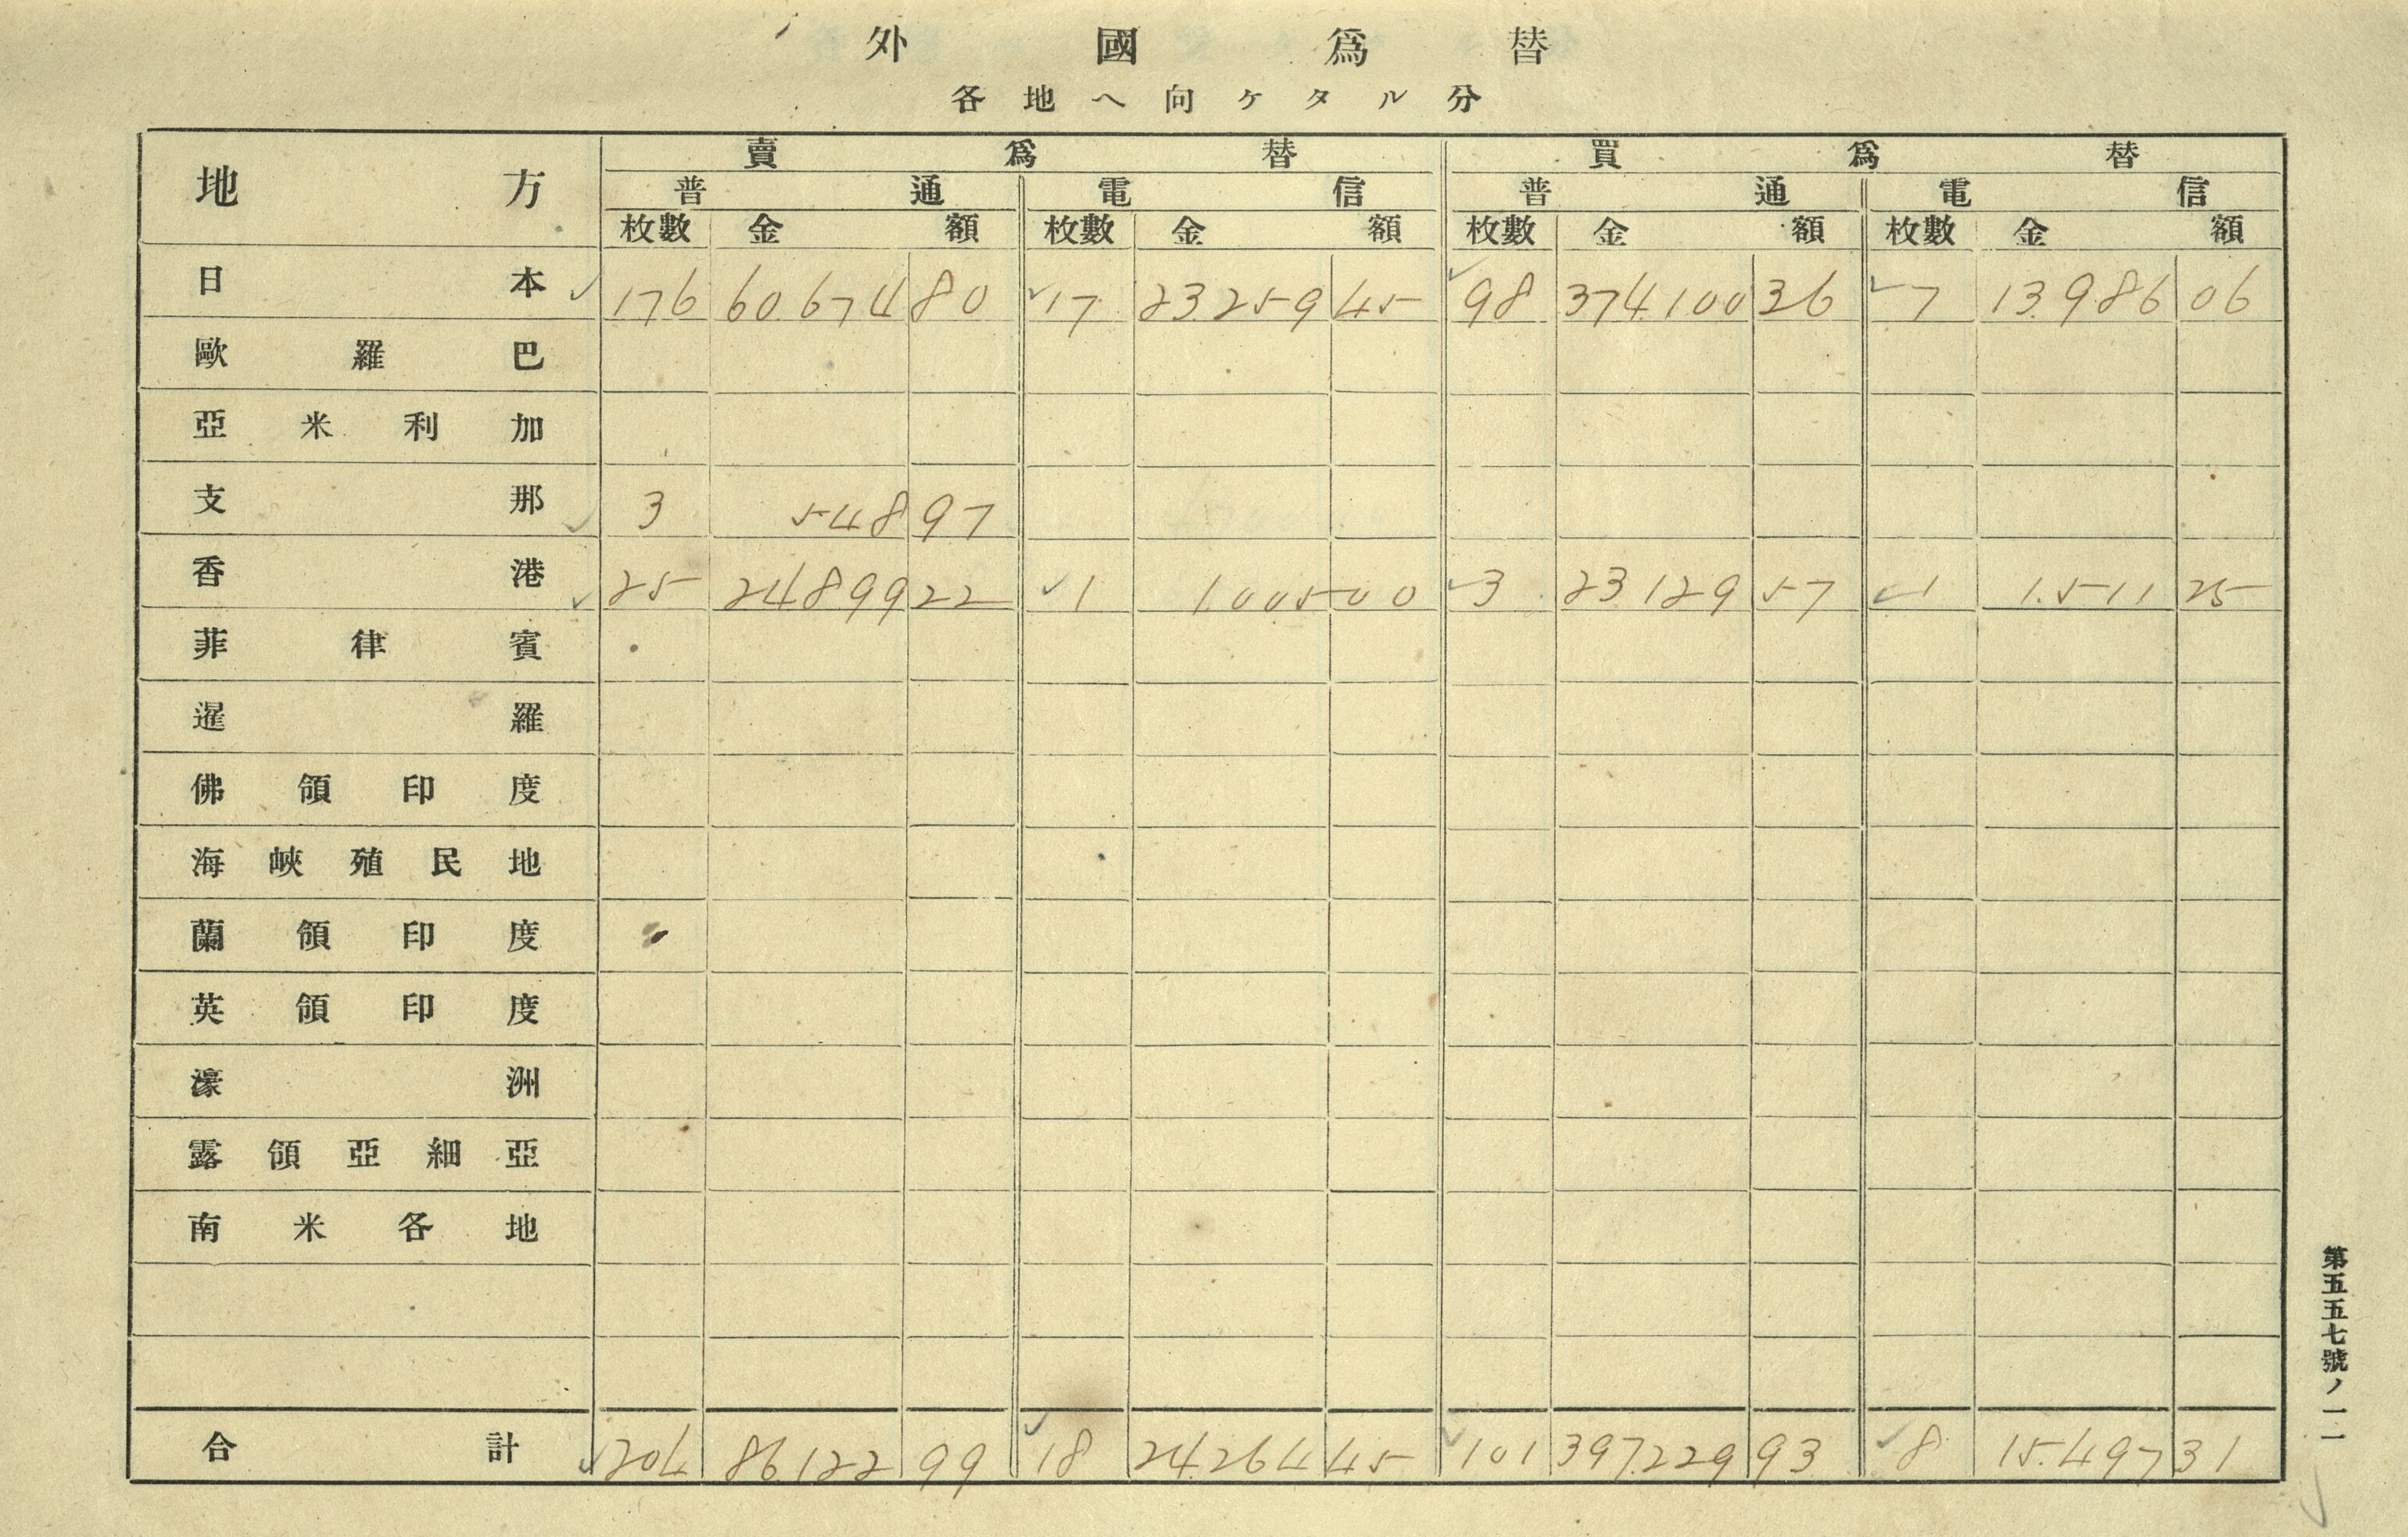 外國爲替
各地へ向ケタル分
地方 賣爲替 買爲替
普通 電信 普通 電信
枚數 金額 枚數 金額 枚數 金額 枚數 金額
日本 176 60.674 80 17 23.259 45 98 374.100 36 7 13.986 06
歐羅巴
亞米利加
支那 3 548 97
香港 25 24899 22 1 1.005 00 3 23.129 57 1 1.511 25
菲律賓
暹羅
佛領印度
海峽殖民地
蘭領印度
英領印度
濠洲
露領亞細亞
南米各地
合計 204 86.122 99 18 24.264 45 101 397.229 93 8 15.497 31
第五五七號ノ一一